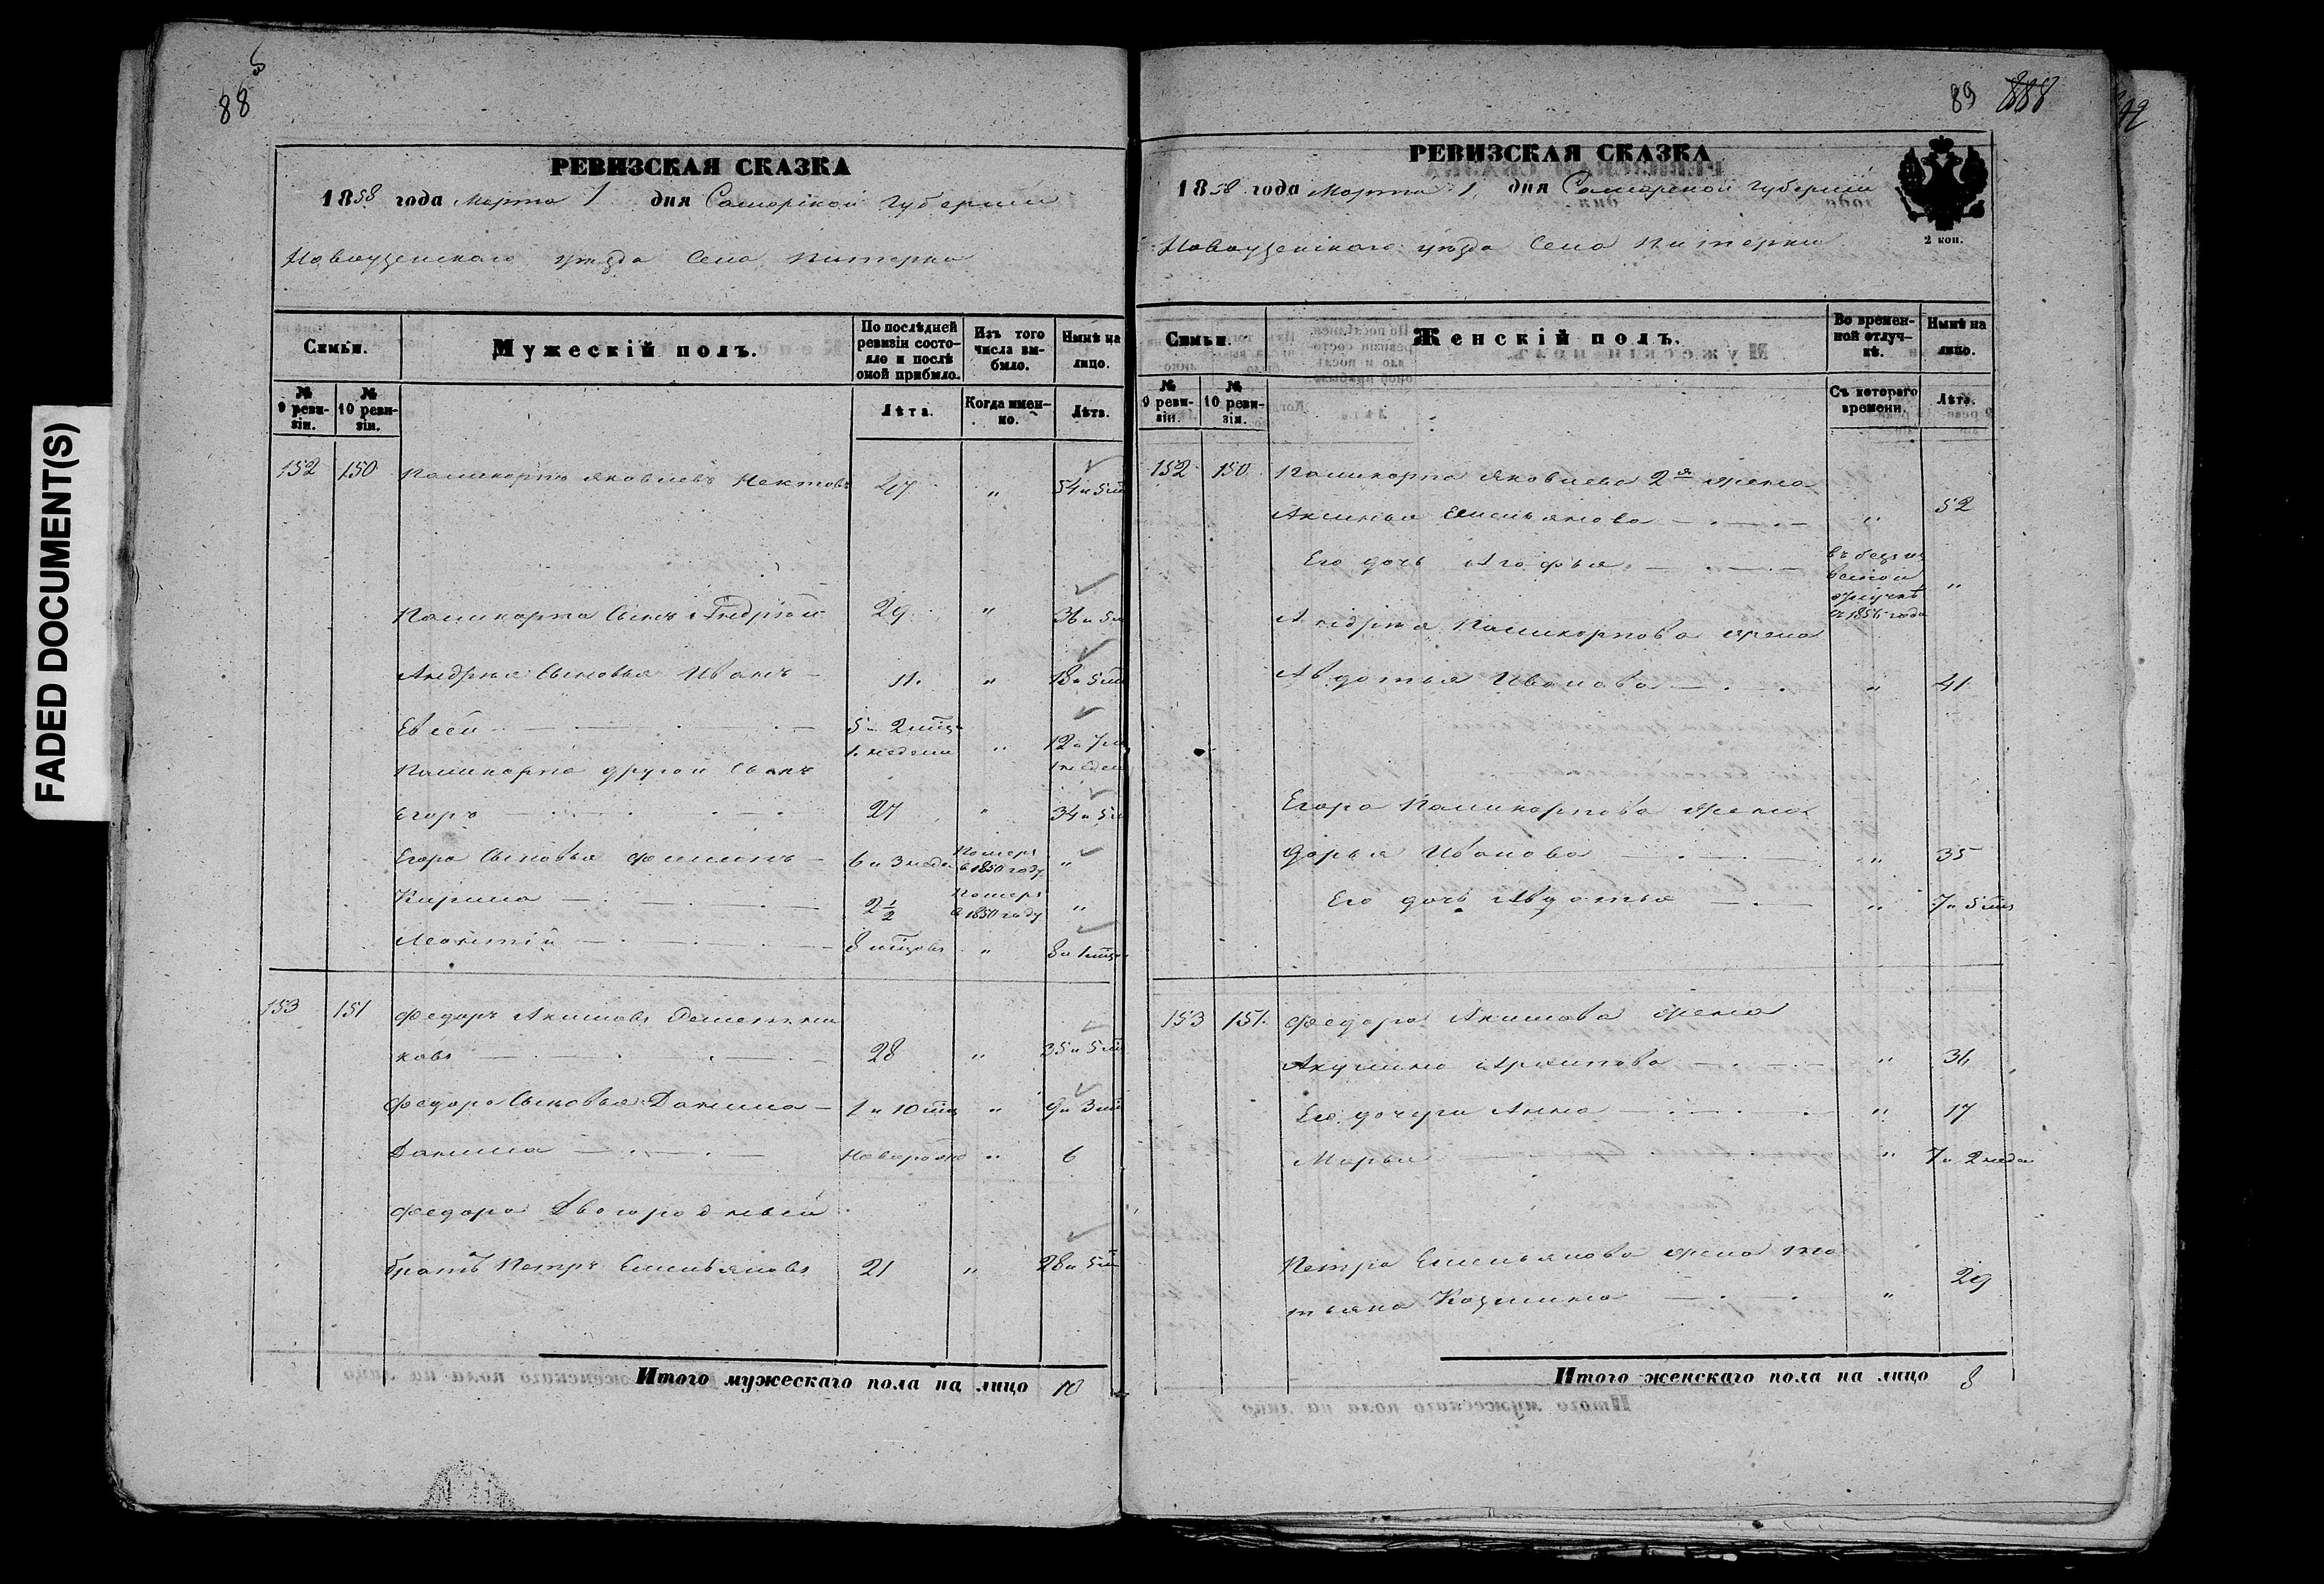 FADED DOCUMENT(S)
88
РЕВИЗСКАЯ СКАЗКА
1858 года Марта 1 дня Самарской Губернии
Новоузенскаго уезда Села Питерки
Семьи.
Мужескій полъ.
По послѣдней ревизіи состояло и послѣ оной прибыло.
Изъ того числа выбыло.
Нынѣ на лицо.
№ 9 ревизіи.
№ 10 ревизіи.
Лѣта.
Когда именно.
Лѣта.
152 150 Паликарпъ Яковлевъ 47 „ 54 и 5
Паликарпа сынъ Андрей 29 „ 36 и 5
Андрея сыновья Иванъ 11 „ 18 и 5
Евсей 5 и 2 мца 1 недели „ 12 и 7
Паликарпа другой сынъ
Егоръ 27 „ 34 и 5
Егора сыновья Филипъ 6 и 3 неде Померъ в 1850 году „
Кирила 2 1/2 Померъ в 1850 году „
Леонтій 8 мцовъ „ 8 и 1 мца
153 151 Федоръ Акимовъ
ковъ 28 „ 35 и 5
Федора сыновья Данила 1 и 10 мца „ 9 и 3
Данила Новорож „ 6
Федора Двоюродный
братъ Петръ Емельяновъ 21 „ 28 и 5
Итого мужескаго пола на лицо 10
89 888
РЕВИЗСКАЯ СКАЗКА
1858 года Марта 1 дня Самарской Губернии
2 коп.
Новоузенскаго уезда Села Питерки
Семьи.
Женскій полъ.
Во временной отлучкѣ.
Нынѣ на лицо.
№ 9 ревизіи.
№ 10 ревизіи.
Съ котораго времени.
Лѣта.
152 150 Паликарпа Яковлева 2я жена
Аксинья Емельянова „ 52
Его дочь Агафья „
Андрея Паликарпова жена
Авдотья Иванова „ 41
Егора Паликарпова жена
Дарья Иванова „ 35
Его дочь Авдотья „ 7 и 5
153 151 Федора Акимова жена
Акулина Архипова „ 36
Его дочери Анна „ 17
Марья „ 7 и 2 неде
Петра Емельянова жена Та
тьяна Козмина „ 29
Итого женскаго пола на лицо 8